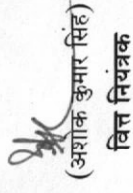 (अशोक कुमार सिंह)
वित्त नियंत्रक